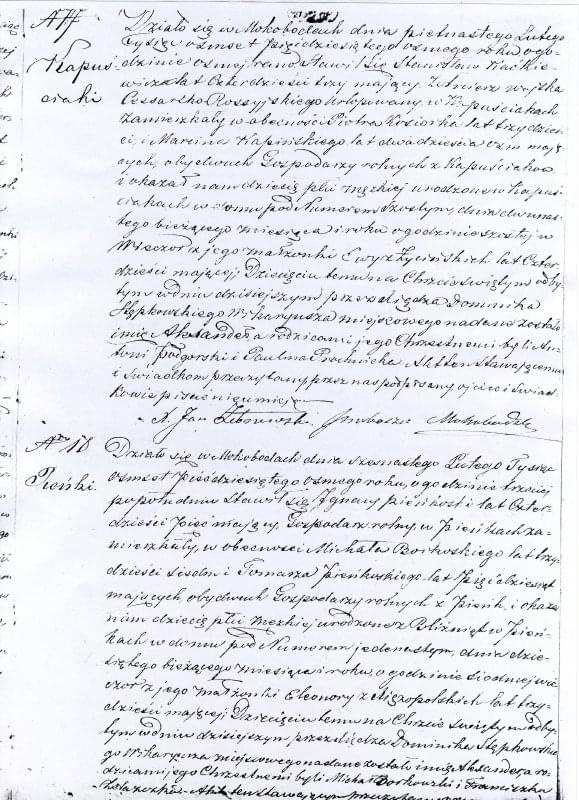 Działo się w Mokobodach dnia piętnastego Lutego
Tysiąc ośmset pięćdziesiątego ósmego roku o go-
Kapuś dzinie ósmej rano stawił się Stanisław
ciaki lat Czterdzieści trzy mający, Żołnierz wojska
Cesarsko Rossyjskiego urlopowany, w Kapuściakach
zamieszkały w obecności Piotra Kosiorka lat trzydzieś-
ci, i Marcina Kapińskiego lat dwadzieścia ośm mają-
cych, obydwuch Gospodarzy rolnych z Kapuściaków
i okazał nam dziecię płci męzkiej urodzone w Kapuś-
ciakach w domu pod Numerem szóstym, dnia dwunas-
tego bieżącego miesiąca i roku o godzinie szóstej w
wieczór z jego małżonki Ewy z lat Czter-
dzieści mającej. Dziecięciu temu na Chrzcie świętym odby-
tym w dniu dzisiejszym przez Xiędza Dominika
Stępkowskiego Wikaryusza miejscowego nadane zostało
imię Alexander, a rodzicami jego Chrzestnemi byli An-
toni Podgorski i Paulina Prochnicka. Akt ten stawającemu
i świadkom przeczytany przez nas podpisany ojciec i świad-
kowie pisać nie umieją
X. Jan Proboszcz Mokobodzki
No 18 Działo się w Mokobodach dnia szesnastego Lutego Tysiąc
ośmset pięćdziesiątego ósmego roku, o godzinie trzeciej
Pieńki. po południu stawił się Ignacy Pieńkost lat Czter-
dzieści pięć mający, Gospodarz rolny, w Pieńkach za-
mieszkały, w obecności Michała Borkowskiego lat trzy-
dzieści siedm i Tomasza Pieńkowskiego lat pięćdziesiąt
mających, obydwuch Gospodarzy rolnych z Pieńk, i okazał
nam dziecię płci męzkiej urodzone z Bliźniąt w Pień-
kach w domu pod Numerem jedenastym, dnia dzie-
siątego bieżącego miesiąca i roku, o godzinie siódmej wie-
czór z jego małżonki Eleonory z Mięzopolskich lat trzy-
dzieści mającej. Dziecięciu temu na Chrzcie świętym odby-
tym w dniu dzisiejszym przez Xiędza Dominika Stępkowskie-
go Wikaryusza miejscowego nadane zostało imię Alexander, a ro-
dzicami jego Chrzestnemi byli Michał Borkowski i Franciszka
Akt ten stawającemu przeczytany